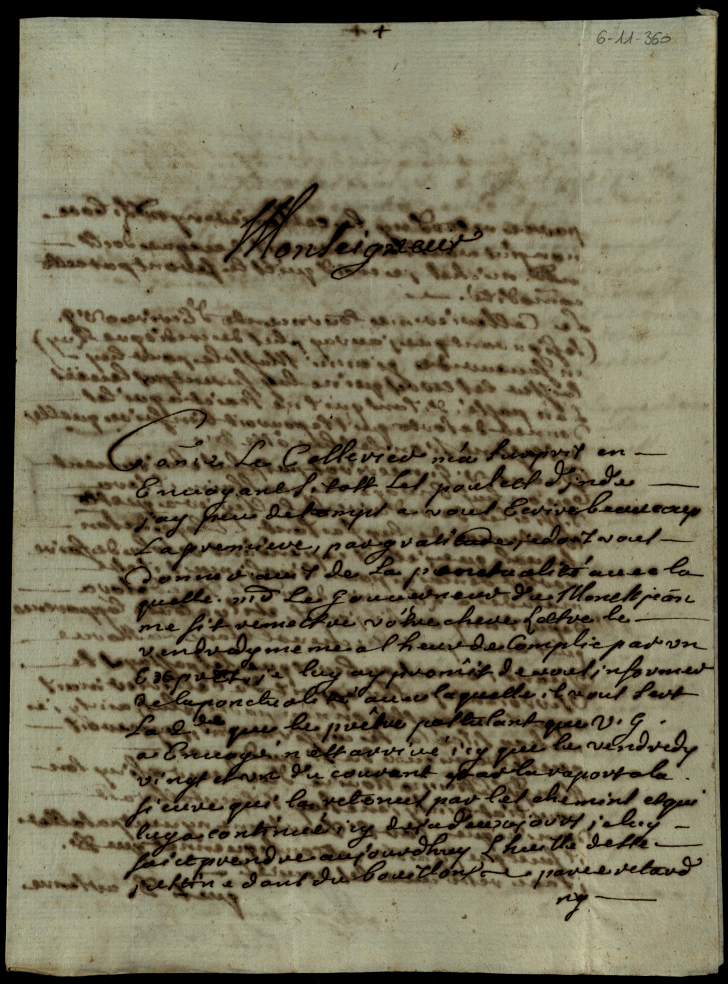 6-11-360
Monseigneur
Le Cellerier m'a surpris en
Envoyant si tost les poulets d'jnde
j'ay peu de temps a vous Ecrire beaucoup
La premiere, par gratitude je dois vous
Donner avis de La ponctualité avec la
quelle mr Le Gouverneur de
me fit remettre vôtre chere Lettre le
vendredy meme a l heure de Complie par un
Exprés, je luy ay promis de vous informer
de la ponctualité avec laquelle il vous sert
La 2.de que le prétre postulant que V. G.
a Envoyé n'est arrivé icy que le vendredy
vingt et un du courant par raport a la
fievre qui la retenu par les chemins et qui
luy a continué icy
fait prendre aujourdhuy L huille
dans du bouillon par ce retard
ny